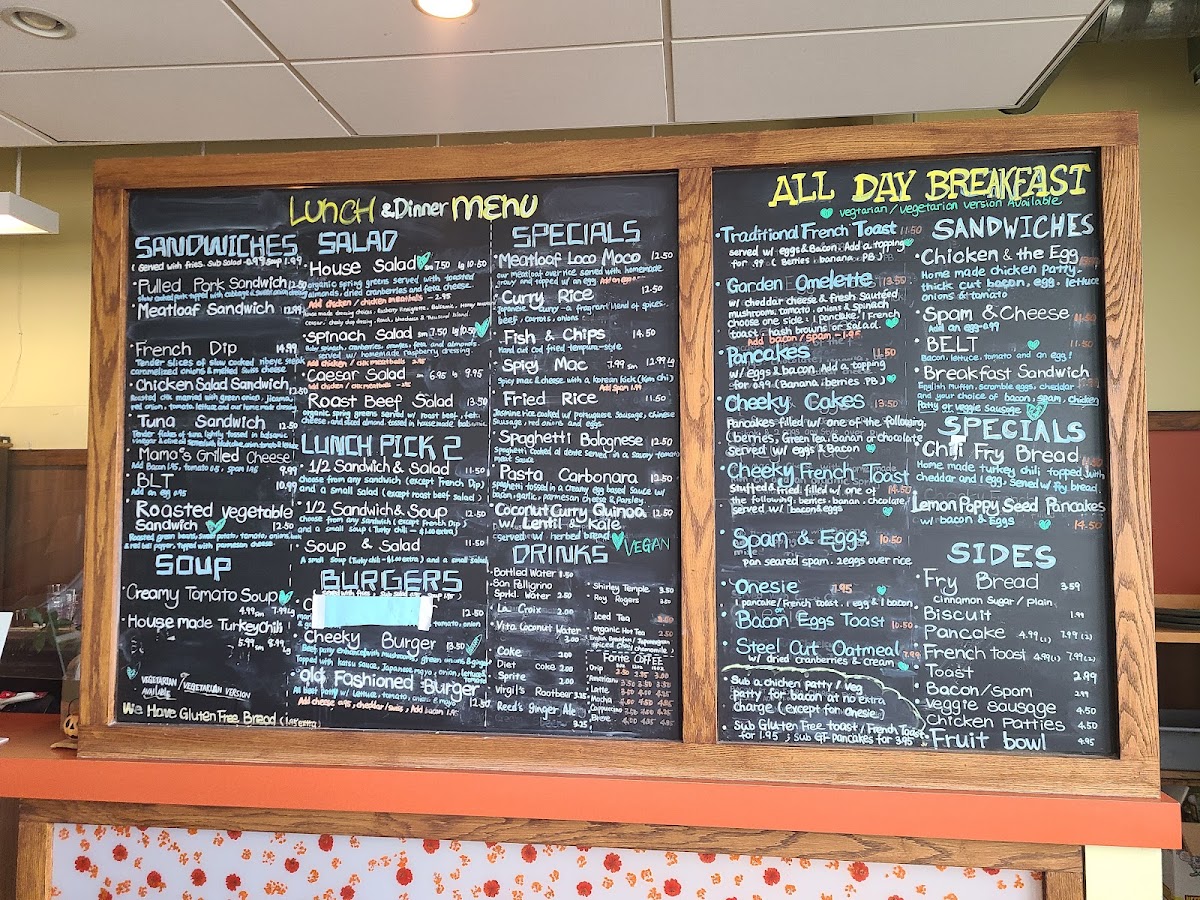 LUNCH & Dinner MENU
SANDWICHES
( Served with fries. Sub Salad 0.99 Soup 1.99
Pulled Pork Sandwich 12.50
Meatloaf Sandwich 12.99
French Dip 14.99
Tender slices of slow cooked ribeye steak
caramelized onions & melted Swiss cheese
Chicken Salad Sandwich 12.50
Roasted chk married with green onion, jicama,
red onion, tomato, lettuce and our home made dressing
Tuna Sandwich 12.50
Tender flakes of tuna lightly tossed in balsamic
Mama's Grilled Cheese 9.99
Add Bacon 1.95, tomato 0.5, spam 1.95
BLT 10.99
Add an egg 0.95
Roasted Vegetable
Sandwich 12.50
Roasted green beans, sweet potatoe, tomato, onions
& red bell paper, topped with parmesan cheese
SOUP
Creamy Tomato Soup
4.99 sm 7.99 Lg
House made Turkey Chili
5.99 sm 8.99 Lg
VEGETARIAN / VEGETARIAN VERSION
AVAILABLE
We Have Gluten Free Bread (1.95 extra)
SALAD
House Salad sm 7.50 lg 10.50
organic spring greens served with toasted
almonds, dried cranberries and feta cheese
Add chicken / chicken meatballs - 2.95
Spinach Salad sm 7.50 lg 10.50
Baby spinach, cranberries, feta and almonds
served w/ homemade raspberry dressing.
Add chicken / chk meatballs
Caesar Salad - 6.95 lg 9.95
Add chicken / chk meatballs
Roast Beef Salad 13.50
organic spring greens served w/ roast beef, fet-
cheese, and sliced almond. tossed in house made balsamic
LUNCH PICK 2
1/2 Sandwich & Salad 11.50
Choose from any sandwich (except French Dip)
and a small salad (except roast beef salad)
1/2 Sandwich & Soup 12.50
Choose from any Sandwich (except French Dip)
and a small soup (Turky chili - $1.00 extra)
Soup & Salad 11.50
A small soup (Turky chili - $1.00 extra) and a small salad
BURGERS
12.50
tomato, onion
Cheeky Burger 13.50
Beef patty enhanced with mushrooms, green onions & ginger
Topped with katsu sauce, Japanese mayo, onion, lettuce
Old Fashioned Burger 12.50
All beef patty w/ Lettuce, tomato, onion & mayo
Add cheese 0.95, cheddar / swiss, Add bacon 1.95
SPECIALS
Meatloaf Loco Moco 12.50
our meatloaf over rice served with homemade
gravy and topped w/ an egg
Curry Rice 12.50
Japanese curry - a fragrant blend of spices.
beef, carrots, onions.
Fish & Chips 14.50
Hand cut cod fried tempura-style
Spicy Mac 7.99 12.99 lg
Spicy mac & cheese with a korean kick (Kim chi)
Add Spam 1.99
Fried Rice 11.50
Jasmine rice cooked w/ portuguese Sausage, Chinese
Sausage, red onions and eggs.
Spaghetti Bolognese 12.50
Spaghetti cooked al dente served in a savory tomato
meat sauce
Pasta Carbonara 12.50
Spaghetti tossed in a creamy egg based sauce w/
bacon, garlic, parmesan cheese & Parsley
Coconut Curry Quinoa 12.50
w/ Lentil & Kale
served w/ herbed bread VEGAN
DRINKS
Bottled Water 1.50
San Pellgrino
Sprkl. Water 2.50
La Croix 2.00
Vita Coconut Water 3.00
Coke 2.00
Diet Coke 2.00
Sprite 2.00
Virgil's Rootbeer 3.25
Reed's Ginger Ale 3.25
Shirley Temple 3.50
Roy Rogers 3.50
Iced Tea 2.00
Organic Hot Tea 2.50
Fonte COFFEE
Drip 2.50 2.75 3.00
Americano
Latte
Mocha
Cappuccino
Breve
ALL DAY BREAKFAST
vegtarian / vegetarian version Available
Traditional French Toast 11.50
served w/ eggs & Bacon. Add a topping
for .99 ( Berries, banana, PB )
Garden Omelette 13.50
w/ cheddar cheese & fresh Sautéed
mushroom, tomato, onion & spinach
Choose one side: 1 pancake, 1 French
toast, hash browns or salad.
Add bacon / spam - 1.95
Pancakes 11.50
w/ eggs & bacon. Add a topping
for 0.99 (Banana, berries, PB )
Cheeky Cakes 13.50
Pancakes filled w/ one of the following
( berries, Green Tea, Banan or chocolate
Served w/ eggs & Bacon
Cheeky French Toast 14.50
Stuffed & fried filled w/ one of
the following: berries, banan, chocolate
served w/ bacon & eggs
Spam & Eggs 10.50
pan seared spam. 2 eggs over rice.
Onesie 7.95
1 pancake / French toast. 1 egg & 1 bacon
Bacon Eggs Toast 10.50
Steel Cut Oatmeal 7.99
w/ dried cranberries & cream
Sub a chicken patty / veg
patty for bacon at no extra
charge (except for onesie)
Sub Gluten Free toast / French Toast
for 1.95 ; Sub GF pancakes for 3.95
SANDWICHES
Chicken & the Egg
Home made chicken patty.
thick cut bacon, egg, lettuce
onions & tomato
Spam & Cheese 11.50
Add an egg 0.99
BELT 11.50
Bacon, lettuce, tomato and an egg!
Breakfast Sandwich
English Muffin, scramble eggs, cheddar
and your choice of bacon, spam, chicken
patty or veggie sausage
SPECIALS
Chili Fry Bread 11.50
Home made turkey chili, topped with
cheddar and 1 egg. Served w/ fry bread.
Lemon Poppy Seed Pancakes
w/ bacon & Eggs 14.50
SIDES
Fry Bread 3.59
Cinnamon Sugar / plain
Biscuit 1.99
Pancake 4.99 (1) 7.99 (2)
French toast 4.99 (1) 7.99 (2)
Toast 2.99
Bacon/spam 2.99
veggie sausage 4.50
Chicken Patties 4.50
Fruit bowl 4.95